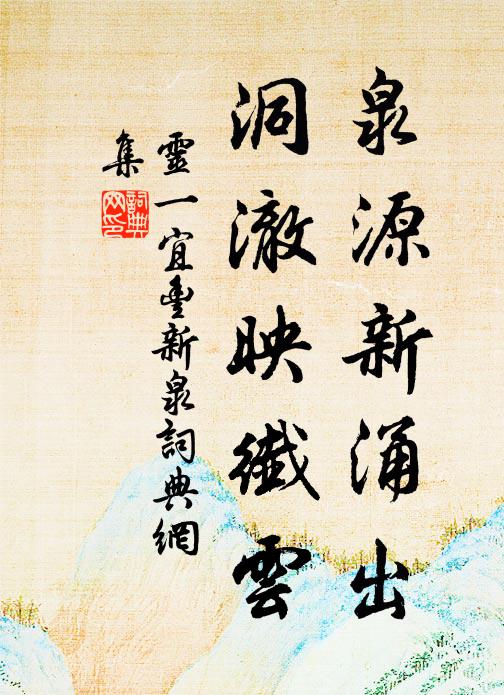 泉源新涌出
洞澈映纖雲
靈一宜豐新泉詞典網
集
詞典網印